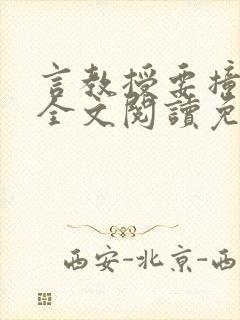 言教授要撞
全文阅读免
西安-北京-西